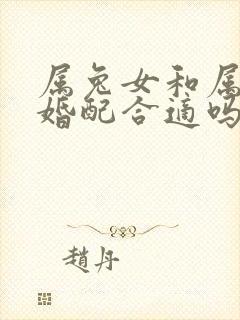 属兔女和属
婚配合适吗
趙丹